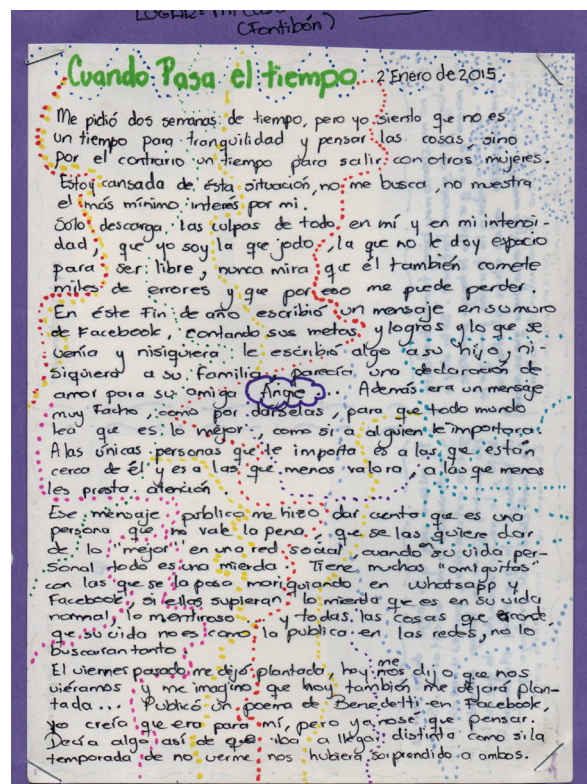 LUGAR: Mi casa
(Fontibón)
Cuando Pasa el tiempo
2 Enero de 2015
Me pidió dos semanas de tiempo, pero yo siento que no es
un tiempo para tranquilidad y pensar las cosas, sino
por el contrario un tiempo para salir con otras mujeres.
Estoy cansada de ésta situación, no me busca, no muestra
el más mínimo interés por mi.
Solo descarga las culpas de todo en mí y en mi intensi-
dad, que yo soy la que jodo, la que no le doy espacio
para ser libre, nunca mira que él también comete
miles de errores y que por eso me puede perder.
En éste Fin de año escribio un mensaje en su muro
de Facebook, contando sus metas y logros y lo que se
venía y nisiquiera le escribio algo a su hijo, ni-
siquiera a su familia, parecía una declaración de
amor para su amiga Angie. Además era un mensaje
muy Facho, como por darselas, para que todo mundo
lea que es lo mejor, como si a alguien le importara.
A las únicas personas que le importa es a las que están
cerca de él y es a las que menos valora, a las que menos
les presta atención
Ese mensaje público me hizo dar cuenta que es una
persona que no vale la pena, que se las quiere dar
de lo "mejor" en una red social, cuando su vida per-
sonal todo es una mierda. Tiene muchas "amiguitas"
con las que se la pasa mariquiando en whatsapp y
Facebook, si ellas supieran lo mierda que es en su vida
normal, lo mentiroso ... y todas las cosas que esconde,
que su vida no es como la publica en las redes, no lo
buscarían tanto.
El viernes pasado me dejó plantada, hoy me dijo que nos
viéramos y me imagino que hoy también me dejará plan-
tada... Publicó un poema de Benedetti en Facebook,
yo crería que era para mí, pero ya nosé que pensar.
Decía algo así de que iba a llegar distinta como si la
temporada de no verme nos hubiera sorprendido a ambos.